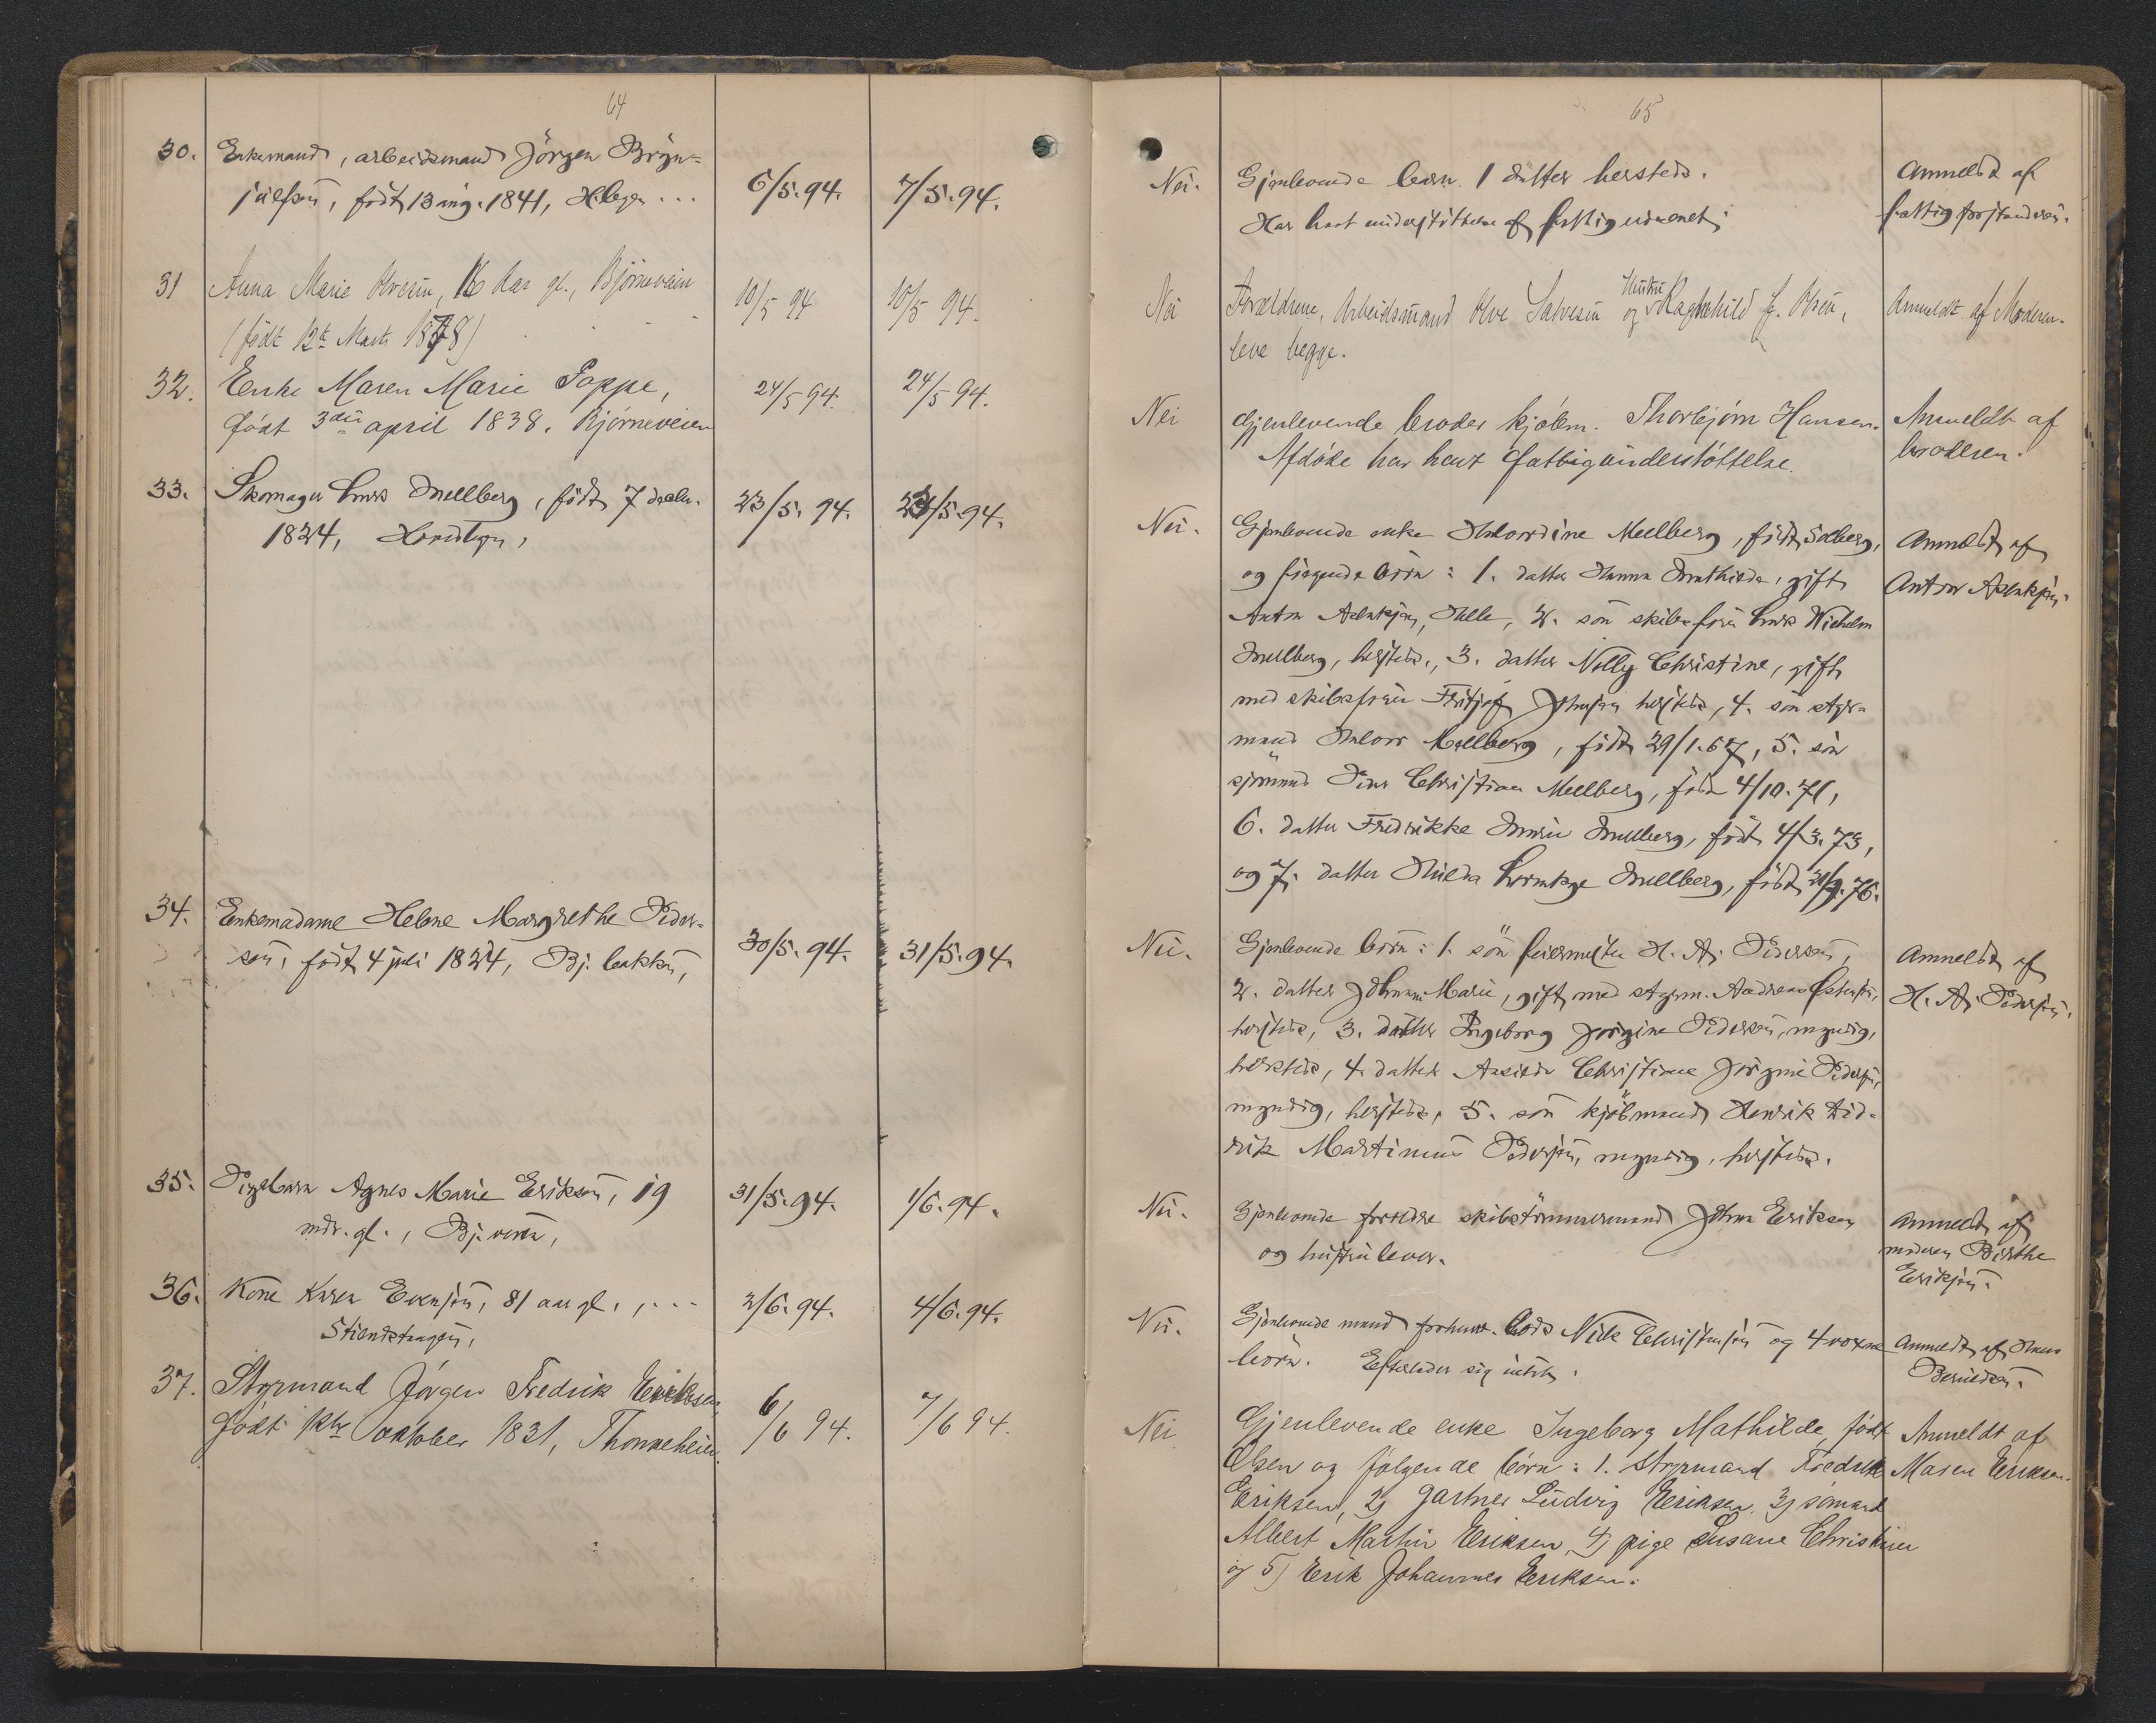 64
30. Enkemand, arbeidsmand Jörgen Bryn-
julfsen, födt 13 aug. 1841,
6/5. 94. 7/5. 94.
31 Anna Marie Olvesen, 16 Aar gl., Bjørneveien
(født 12te Marts 1878)
10/5 94 10/5 94.
32. Enke Maren Marie Poppe,
født 3die april 1838. Bjørneveien
24/5 94. 24/5 94.
33. Skomager Lars Mellberg, födt 7
1824,
23/5. 94. 23/5. 94.
34. Enkemadame Helene Margrethe Peder-
sen, födt 4 juli 1824, Bj. bakken,
30/5. 94. 31/5. 94.
35. Pigebarn Agnes Marie Eriksen, 19
mdr. gl., Bj. veien,
31/5. 94. 1/6. 94.
36. Kone Karen Evensen, 81 aar gl.,
2/6. 94. 4/6. 94.
37. Styrmand Jörgen Fredrik Eriksen,
født 1ste oktober 1831, Thonneheien.
6/6 94. 7/6 94.
65
Nei. Gjenlevende barn 1 datter hersteds.
Har havt understöttelse af fattigvæsenet.
Anmeldt af
fattigforstanderen.
Nei Forældrene, Arbeidsmand Olve Salvesen og Hustru Ragnhild f. Olsen,
leve begge.
Anmeldt af Moderen.
Nei Gjenlevende broder kjøbm. Thorbjørn Hansen.
Afdøde har havt Fattigunderstøttelse.
Anmeldt af
broderen.
Nei. Gjenlevende enke Halvordine Mellberg, födt Solberg,
og følgende börn: 1. datter Hanna Mathilde, gift
Anton 2. sön skibsförer Lars Wilhelm
Mellberg, hersteds, 3. datter Nelly Christine, gift
med skibsförer Fritjof Johnsen hersteds, 4. sön styr-
mand Halvor Mellberg, födt 29/1. 67, 5. sön
sjömand Peder Christian Mellberg, födt 4/10. 71,
6. datter Fredrikke Marie Mellberg, födt 4/3. 73,
og 7. datter Hilda Mellberg, födt 76.
Anmeldt af
Anton
Nei. Gjenlevende börn: 1. sön feiermester H. A. Pedersen,
2. datter Johanne Marie, gift med styrm. Andreas
hersteds, 3. datter Ingeborg Jörgine Pedersen, myndig,
hersteds, 4. datter Christiane Jörgine Pedersen,
myndig, hersteds, 5. sön kjöbmand Henrik Did-
rik Martinius Pedersen, myndig, hersteds.
Anmeldt af
H. A. Pedersen.
Nei. Gjenlevende forældre skibstömmermand Johan Eriksen
og hustru lever.
Anmeldt af
moderen Birthe
Eriksen.
Nei. Gjenlevende mand Nils Christensen og 4 voxne
börn. Efterlader sig intet.
Anmeldt af
Nei Gjenlevende enke Ingeborg Mathilde, født
Olsen og følgende börn: 1. styrmand Fredrik
Eriksen, 2) gartner Ludvig Eriksen, 3) sømand
Albert Martin Eriksen, 4) pige Susane Christine
og 5) Erik Johannes Eriksen.
Anmeldt af
Maren Eriksen.